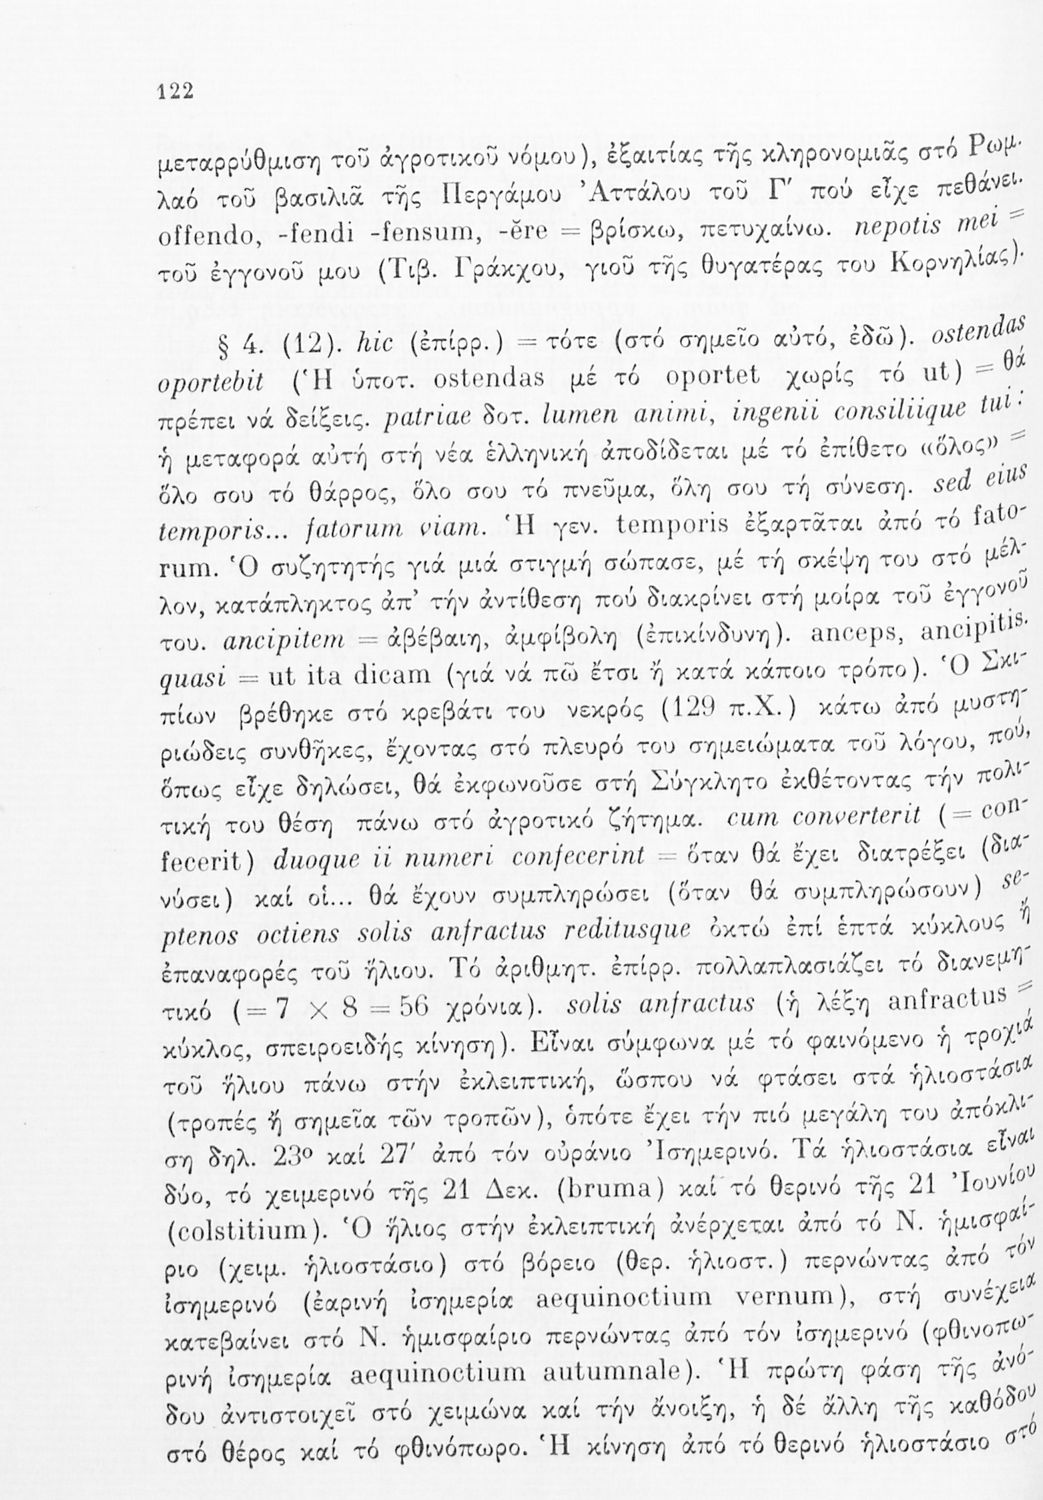 122
μεταρρύθμιση τοῦ ἀγροτικοῦ νόμου), ἐξαιτίας τῆς κληρονομιᾶς στό Ρωμ-
λαό τοῦ βασιλιᾶ τῆς Περγάμου Ἀττάλου τοῦ Γ′ πού εἶχε πεθάνει.
offendo, -fendi -fensum, -ĕre = βρίσκω, πετυχαίνω. nepotis mei =
τοῦ ἐγγονοῦ μου (Τιβ. Γράκχου, γιοῦ τῆς θυγατέρας του Κορνηλίας).
§ 4. (12). hic (ἐπίρρ.) = τότε (στό σημεῖο αὐτό, ἐδῶ). ostendas
oportebit (Ἡ ὑποτ. ostendas μέ τό oportet χωρίς τό ut) = θά
πρέπει νά δείξεις. patriae δοτ. lumen animi, ingenii consiliique tui:
ἡ μεταφορά αὐτή στή νέα ἑλληνική ἀποδίδεται μέ τό ἐπίθετο «ὅλος» =
ὅλο σου τό θάρρος, ὅλο σου τό πνεῦμα, ὅλη σου τή σύνεση. sed eius
temporis... fatorum viam. Ἡ γεν. temporis ἐξαρτᾶται ἀπό τό fato-
rum. Ὁ συζητητής γιά μιά στιγμή σώπασε, μέ τή σκέψη του στό μέλ-
λον, κατάπληκτος ἀπ’ τήν ἀντίθεση πού διακρίνει στή μοίρα τοῦ ἐγγονοῦ
του. ancipitem = ἀβέβαιη, ἀμφίβολη (ἐπικίνδυνη). anceps, ancipitis.
quasi = ut ita dicam (γιά νά πῶ ἔτσι ἤ κατά κάποιο τρόπο). Ὁ Σκι-
πίων βρέθηκε στό κρεβάτι του νεκρός (129 π.Χ.) κάτω ἀπό μυστη-
ριώδεις συνθῆκες, ἔχοντας στό πλευρό του σημειώματα τοῦ λόγου, πού,
ὅπως εἶχε δηλώσει, θά ἐκφωνοῦσε στή Σύγκλητο ἐκθέτοντας τήν πολι-
τική του θέση πάνω στό ἀγροτικό ζήτημα. cum converterit (= con-
fecerit) duoque ii numeri confecerint = ὅταν θά ἔχει διατρέξει (δια-
νύσει) καί οἱ... θά ἔχουν συμπληρώσει (ὅταν θά συμπληρώσουν) se-
ptenos octiens solis anfractus reditusque ὀκτώ ἐπί ἑπτά κύκλους ἤ
ἐπαναφορές τοῦ ἥλιου. Τό ἀριθμητ. ἐπίρρ. πολλαπλασιάζει τό διανεμη-
τικό (= 7 × 8 = 56 χρόνια). solis anfractus (ἡ λέξη anfractus =
κύκλος, σπειροειδής κίνηση). Εἶναι σύμφωνα μέ τό φαινόμενο ἡ τροχιά
τοῦ ἥλιου πάνω στήν ἐκλειπτική, ὥσπου νά φτάσει στά ἡλιοστάσια
(τροπές ἤ σημεῖα τῶν τροπῶν), ὁπότε ἔχει τήν πιό μεγάλη του ἀπόκλι-
ση δηλ. 23ο καί 27′ ἀπό τόν οὐράνιο Ἰσημερινό. Τά ἡλιοστάσια εἶναι
δύο, τό χειμερινό τῆς 21 Δεκ. (bruma) καί τό θερινό τῆς 21 Ἰουνίου
(colstitium). Ὁ ἥλιος στήν ἐκλειπτική ἀνέρχεται ἀπό τό Ν. ἡμισφαί-
ριο (χειμ. ἡλιοστάσιο) στό βόρειο (θερ. ἡλιοστ.) περνώντας ἀπό τόν
ἰσημερινό (ἐαρινή ἰσημερία aequinoctium vernum), στή συνέχεια
κατεβαίνει στό Ν. ἡμισφαίριο περνώντας ἀπό τόν ἰσημερινό (φθινοπω-
ρινή ἰσημερία aequinoctium autumnale). Ἡ πρώτη φάση τῆς ἀνό-
δου ἀντιστοιχεῖ στό χειμώνα καί τήν ἄνοιξη, ἡ δέ ἄλλη τῆς καθόδου
στό θέρος καί τό φθινόπωρο. Ἡ κίνηση ἀπό τό θερινό ἡλιοστάσιο στό